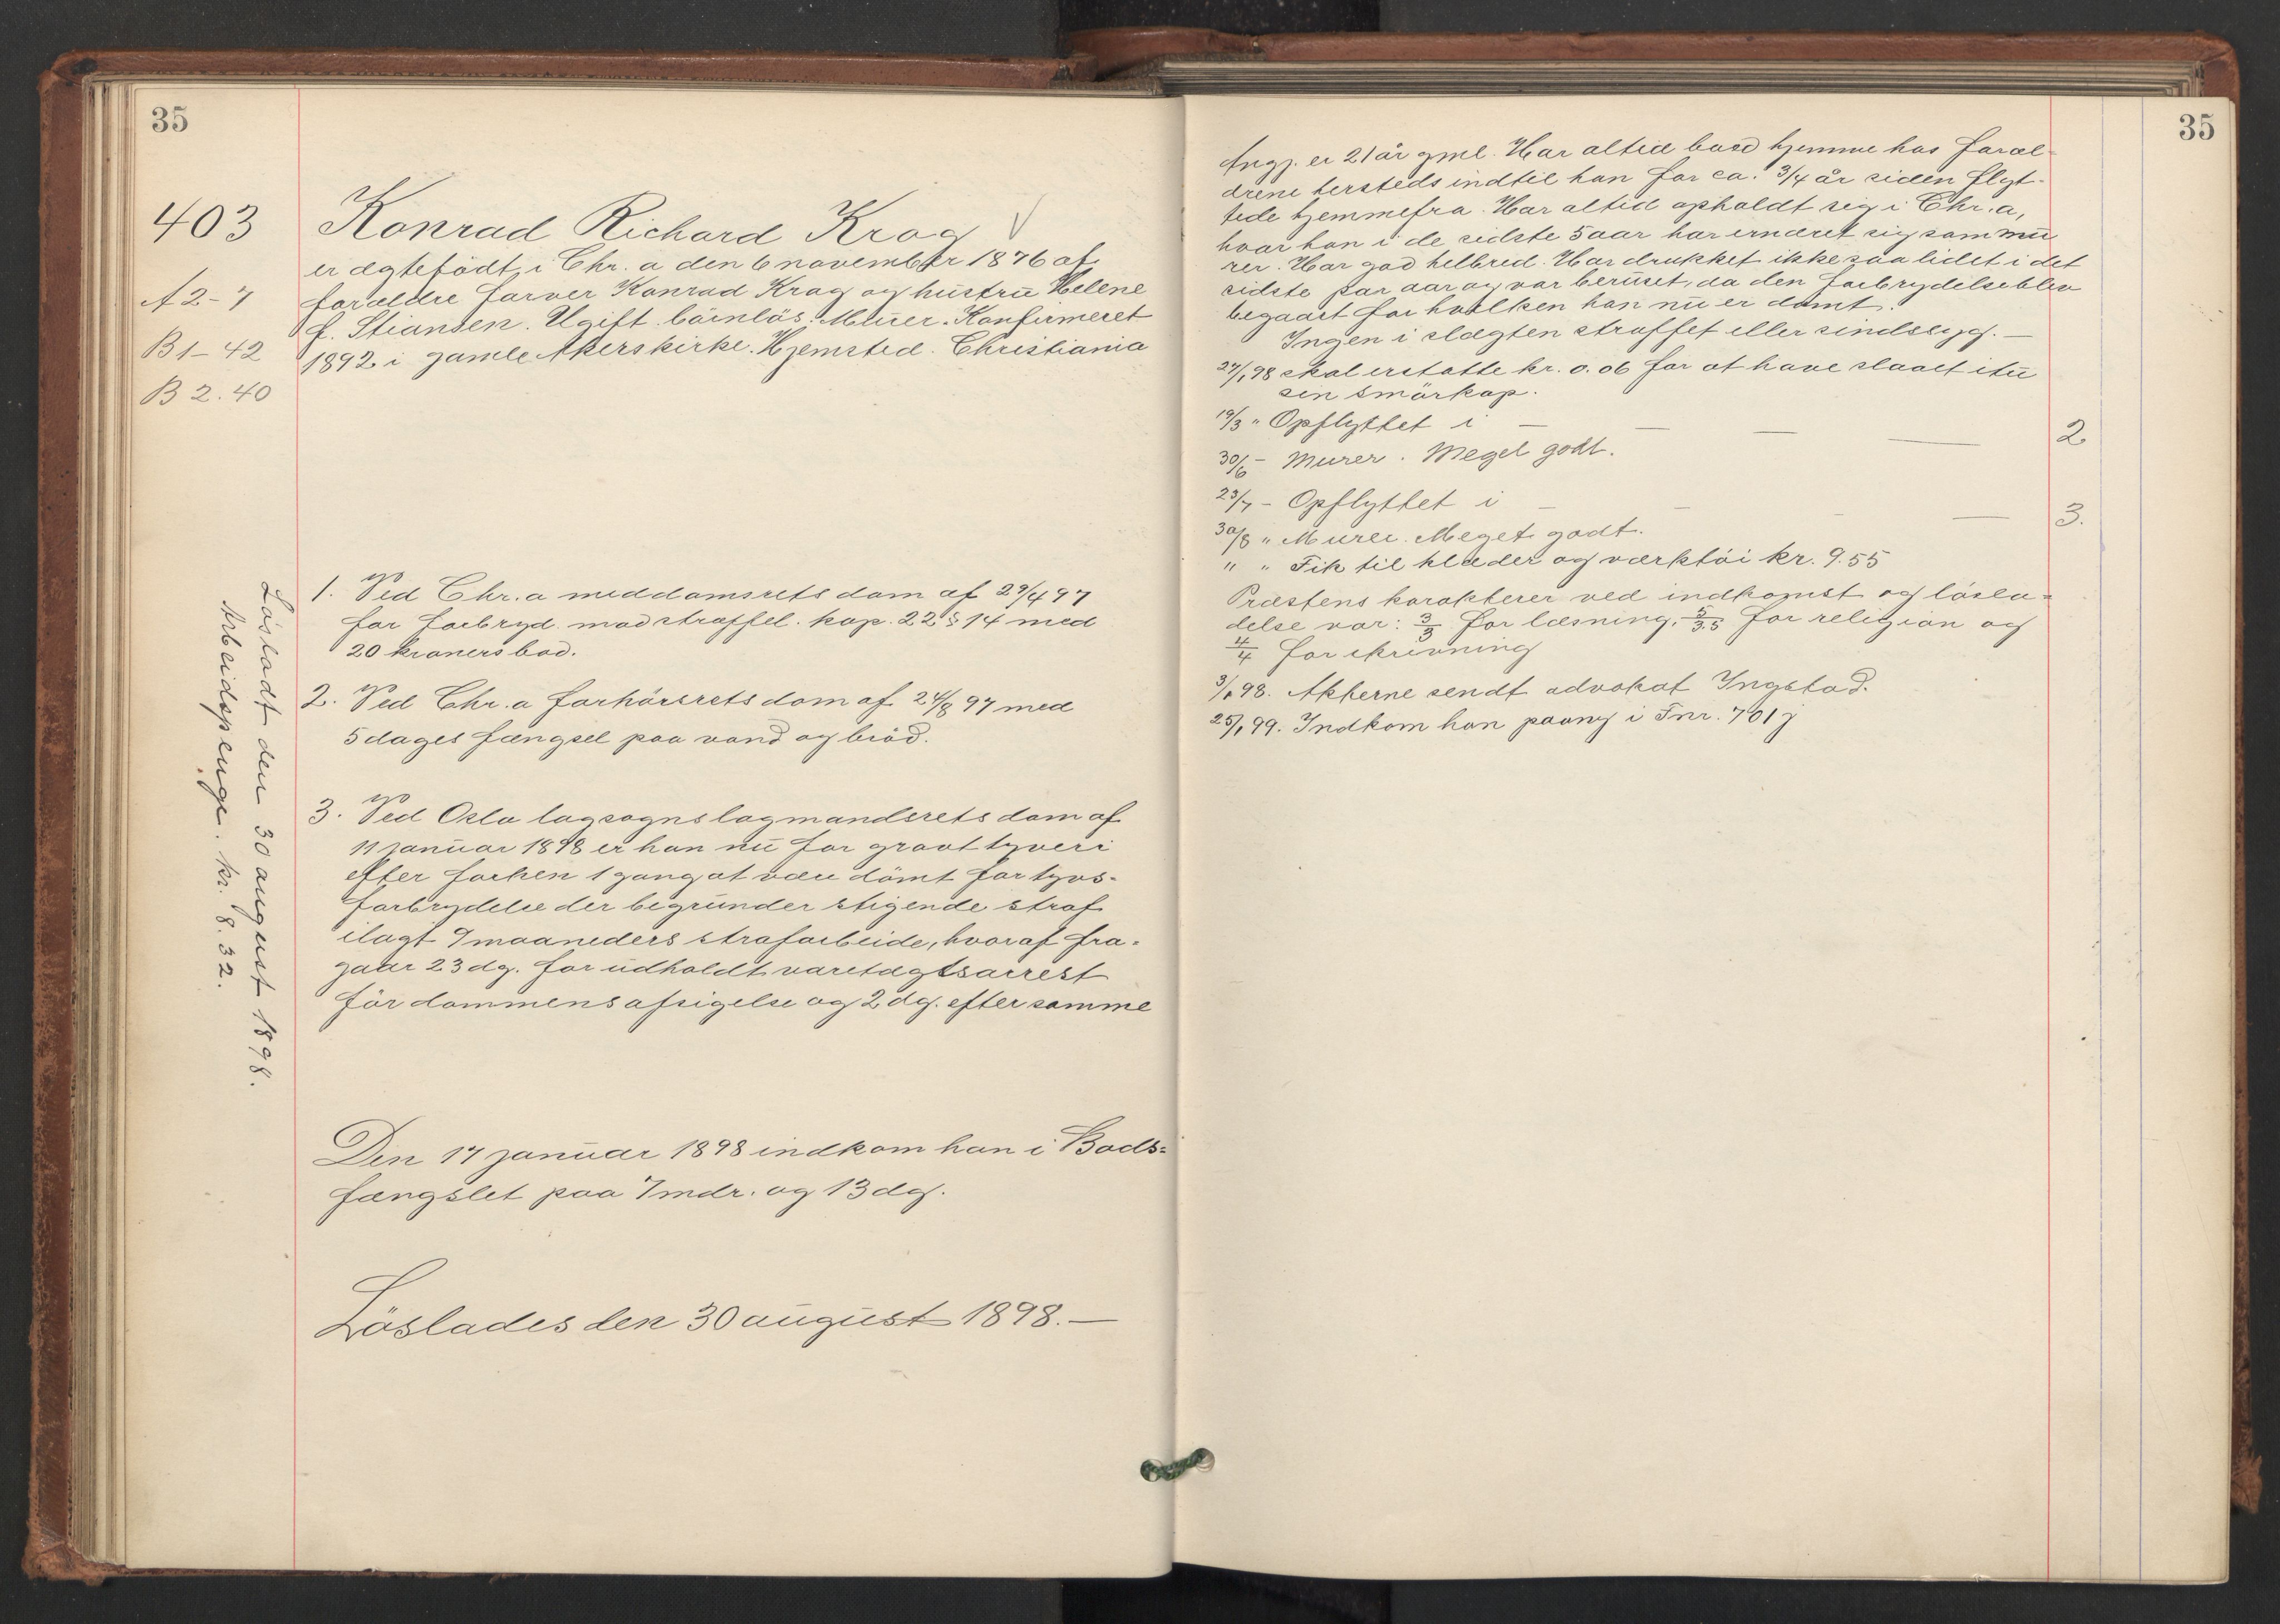 35
403
A 2-7
B 1-42
B 2. 40
Konrad Richard Krog √
er ægtefödt i Chr.a den 6 november 1876 af
forældre farver Konrad Krog og hustru Helene
f. Stiansen. Ugift. barnlös. Murer. Konfirmeret
1892 i gamle Akers kirke. Hjemsted. Christiania
1. Ved Chr.a meddomsrets dom af 29/4 97
for forbryd. mod straffel. kap. 22 § 14 med
20 kroners bod.
2. Ved Chr.a forhörsrets dom af 24/8 97 med
5 dages fængsel paa vand og bröd.
3. Ved Oslo lagsogns lagmandsrets dom af
11 januar 1898 er han nu for grovt tyveri
efter forhen 1 gang at være dömt for tyvs-
forbrydelse der begrunder stigende straf
ilagt 9 maaneders strafarbeide, hvoraf fra-
gaar 23 dg. for udholdt varetægtsarrest
för dommens afsigelse og 2 dg. efter samme
Den 17 januar 1898 indkom han i Bods-
fængslet paa 7 mdr. og 13 dg.
Löslades den 30 august 1898. —
Lösladt den 30 august 1898.
Arbeidspenge. kr. 8.32.
35
Angj. er 21 år gml. Har altid boed hjemme hos foræl-
drene hersteds indtil han for ca. 3/4 år siden flyt-
tede hjemmefra. Har altid opholdt sig i Chr.a,
hvor han i de sidste 5 aar har ernæret sig som mu
rer. Har god helbred. Har drukket ikke saa lidet i det
sidste par aar og var beruset, da den forbrydelse blev
begaaet for hvilken han nu er dömt.
Ingen i slægten straffet eller sindssyg. —
27/1 98 skal erstatte kr. 0.06 for at have slaaet itu
sin smörkop.
19/3 " Opflyttet i — — — — 2
30/6 - Murer. Meget godt.
23/7 - Opflyttet i — — — — 3.
30/8 " Murer. Meget godt.
" " Fik til klæder og værktöi kr. 9.55
Præstens karakterer ved indkomst og lösla-
delse var: 3/3 for læsning, 5/3.5 for religion og
4/4 for skrivning
98. Akterne sendt advokat Ingstad.
25/1 99. Indkom han paany i Fnr. 701 j